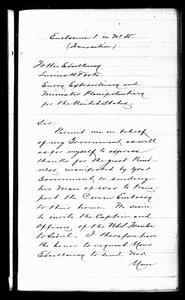 Enclosure 1 in No. 14
(Translation)
To His Excellency
Lucius H. Foote
Envoy Extraordinary and
Minister Plenipotentiary
for the United States
Sir:
Permit me on behalf
of my Government, as well
as for myself to express
thanks for the great kind-
ness, manifested by your
Government, in sending
her Man of war to trans-
port the Corean Embassy
to their home. We desire
to invite the Captain and
Officers of the
to Seoul. I therefore have
the honor to request Your
Excellency to send